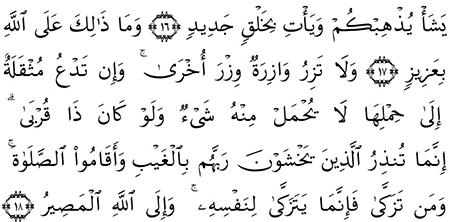 يَشَأۡ يُذۡهِبۡكُمۡ وَيَأۡتِ بِخَلۡقٖ جَدِيدٖ ﴿١٦﴾ وَمَا ذَٰلِكَ عَلَى ٱللَّهِ
بِعَزِيزٖ ﴿١٧﴾ وَلَا تَزِرُ وَازِرَةٞ وِزۡرَ أُخۡرَىٰۚ وَإِن تَدۡعُ مُثۡقَلَةٌ
إِلَىٰ حِمۡلِهَا لَا يُحۡمَلۡ مِنۡهُ شَيۡءٞ وَلَوۡ كَانَ ذَا قُرۡبَىٰٓۗ
إِنَّمَا تُنذِرُ ٱلَّذِينَ يَخۡشَوۡنَ رَبَّهُم بِٱلۡغَيۡبِ وَأَقَامُواْ ٱلصَّلَوٰةَۚ
وَمَن تَزَكَّىٰ فَإِنَّمَا يَتَزَكَّىٰ لِنَفۡسِهِۦۚ وَإِلَى ٱللَّهِ ٱلۡمَصِيرُ ﴿١٨﴾